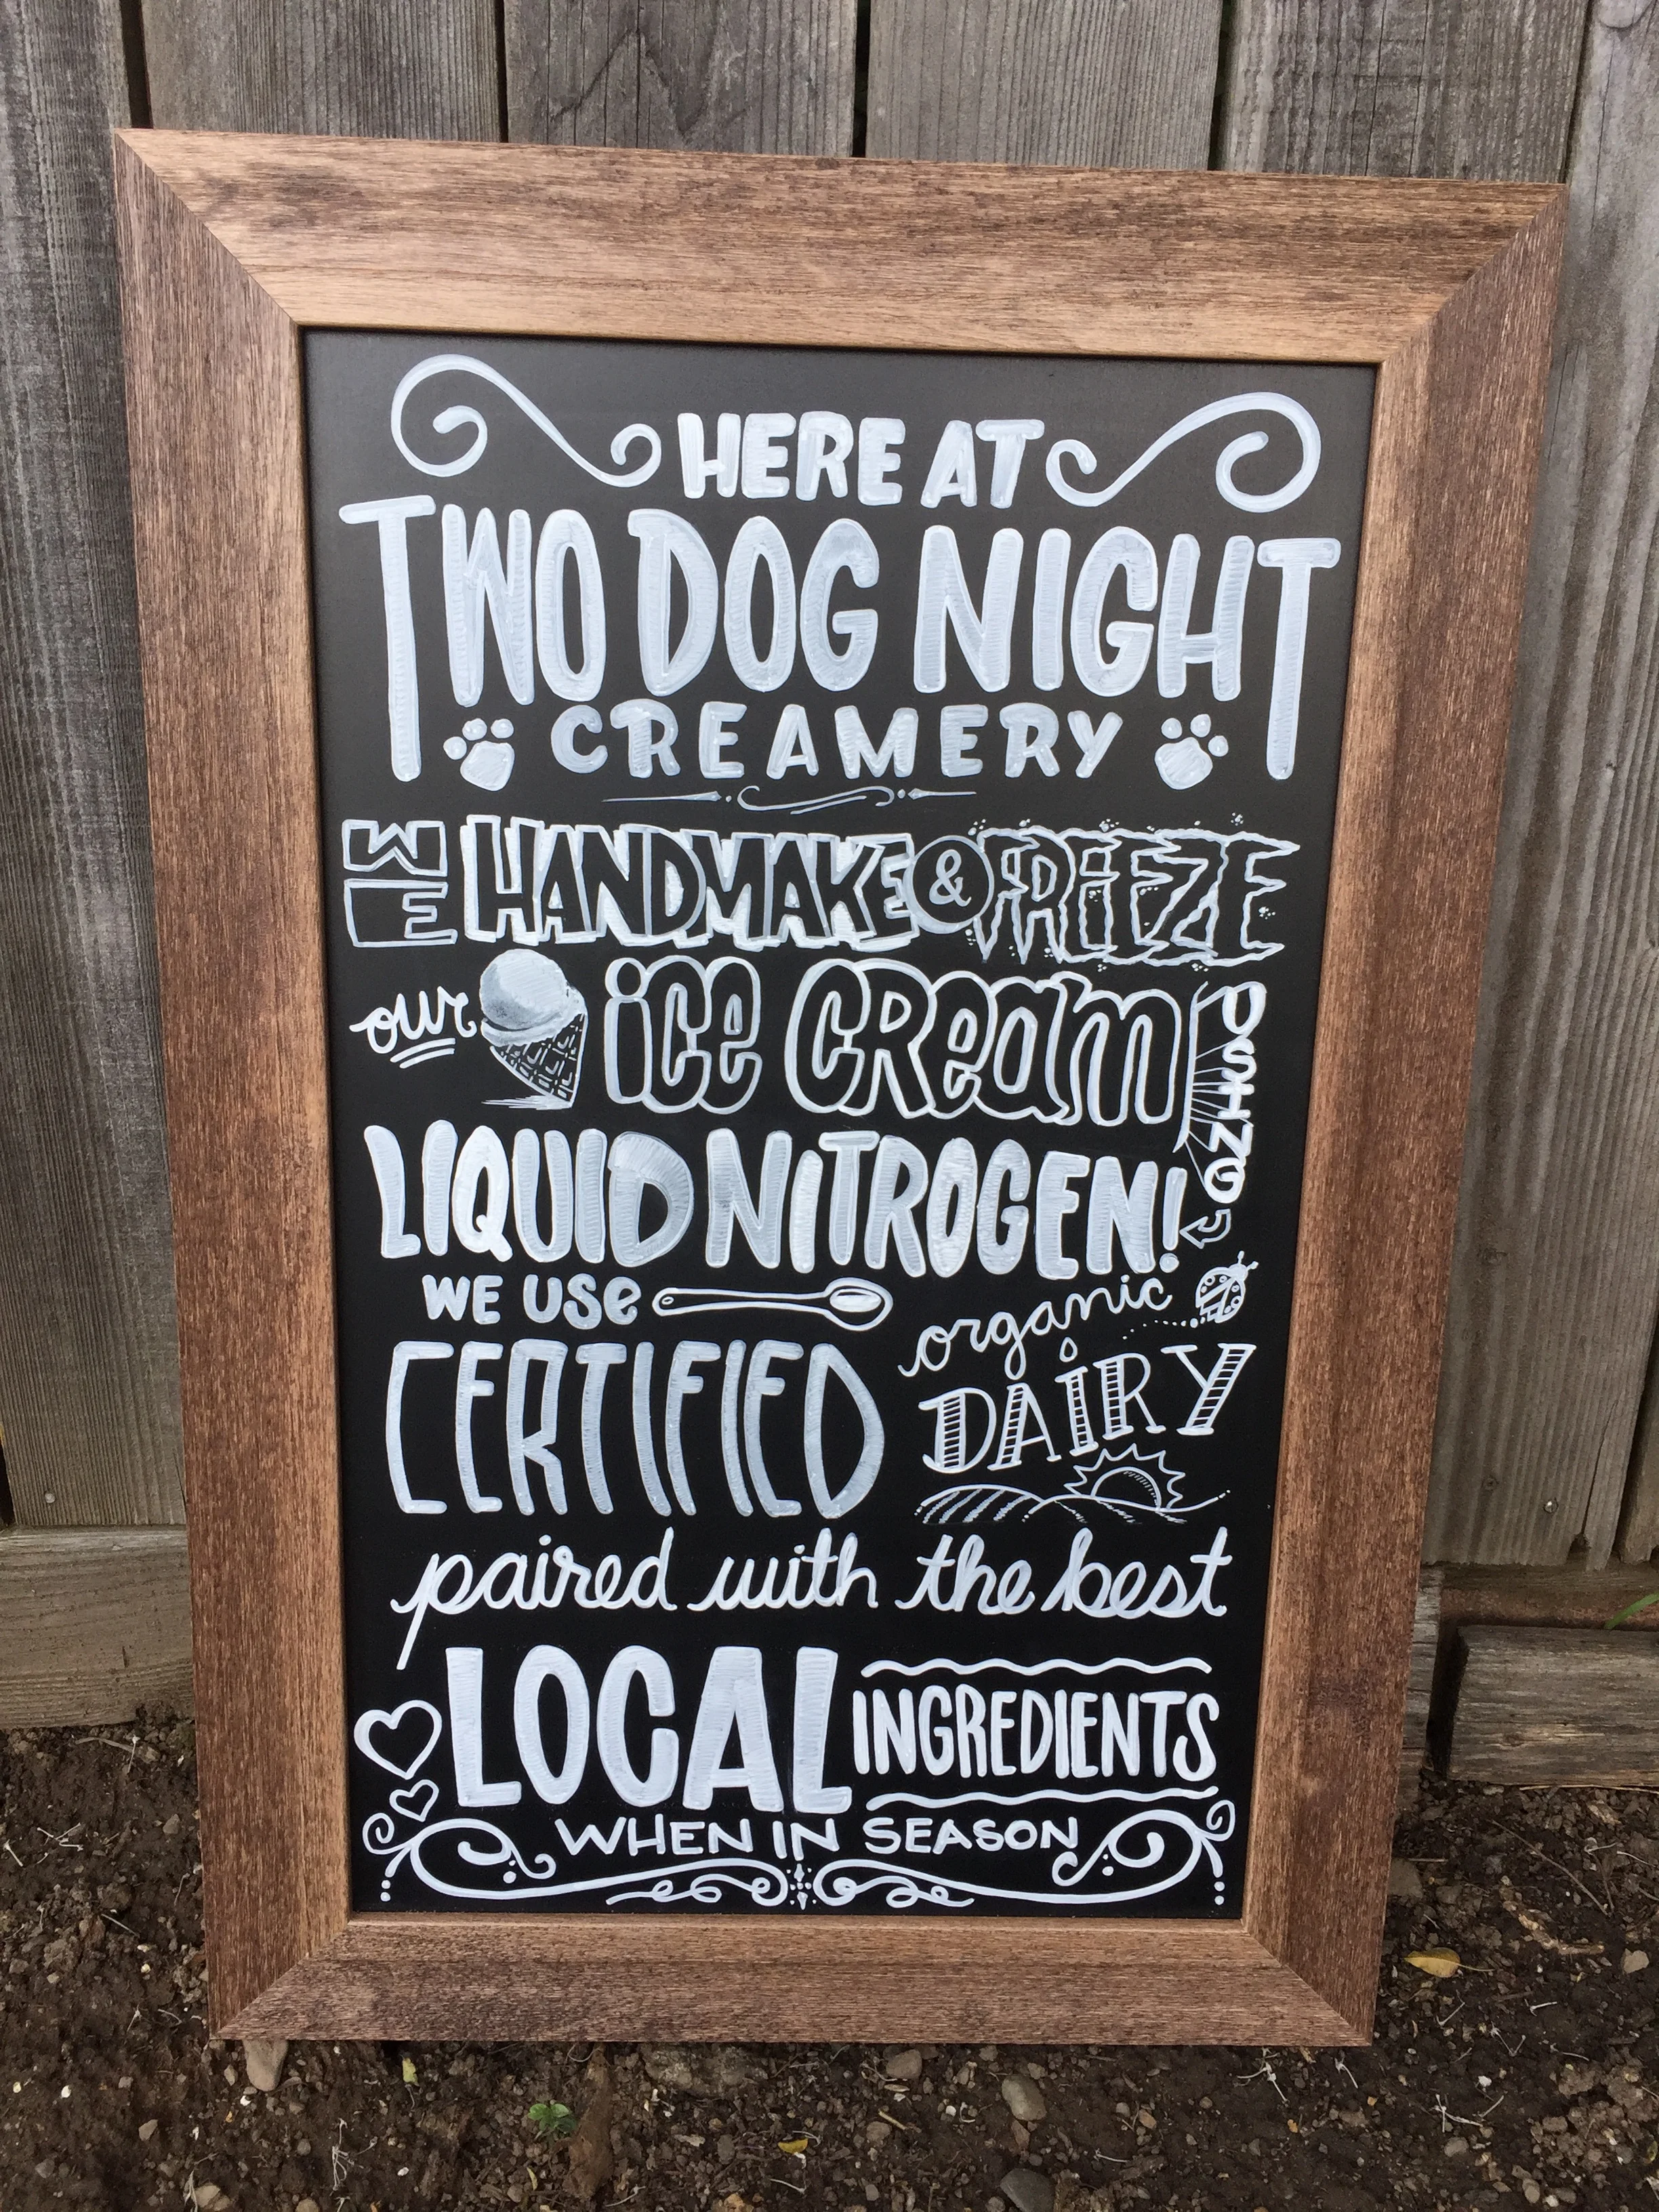 HERE AT
TWO DOG NIGHT
CREAMERY
WE HANDMAKE & FREEZE
our ice cream USING
LIQUID NITROGEN!
WE USE
CERTIFIED organic
DAIRY
paired with the best
LOCAL INGREDIENTS
WHEN IN SEASON